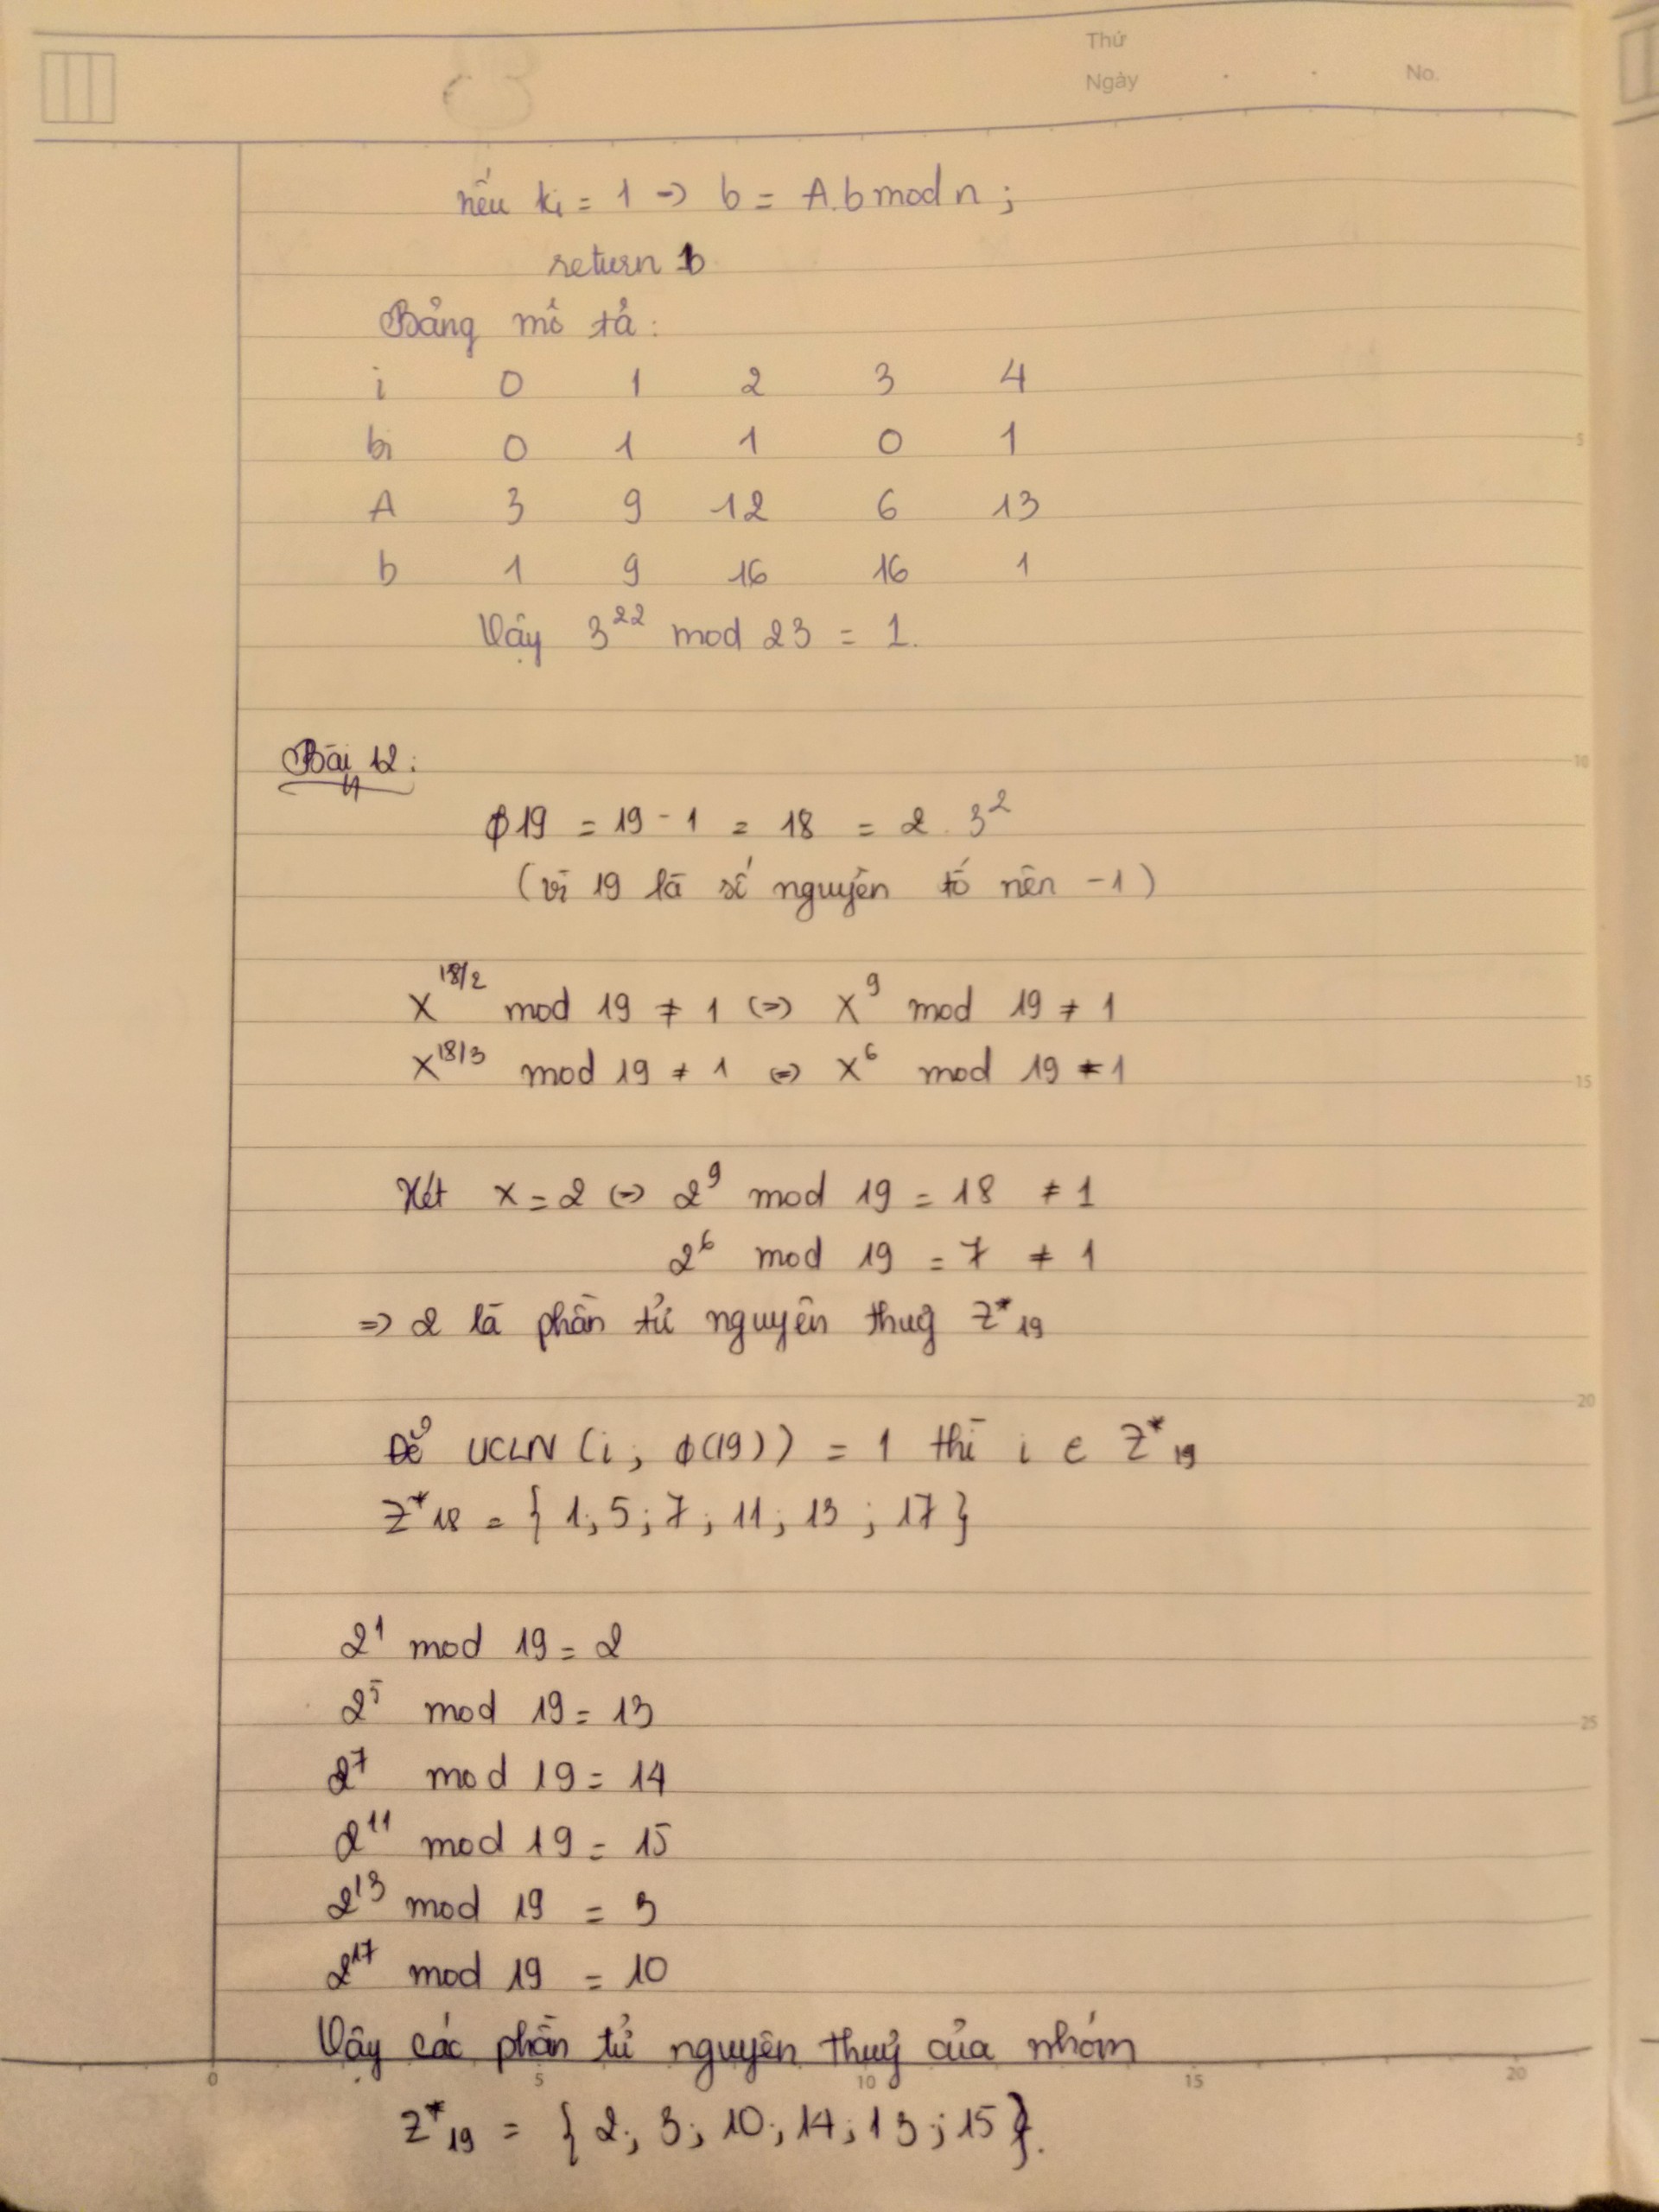 Thứ
Ngày . . No.
nếu ki = 1 => b = A.b mod n ;
return b
Bảng mô tả :
i 0 1 2 3 4
bi 0 1 1 0 1
A 3 9 12 6 13
b 1 9 16 16 1
Vậy 3²² mod 23 = 1.
Bài 12 :
ϕ19 = 19 - 1 = 18 = 2 . 3²
(vì 19 là số nguyên tố nên -1)
X^18/2 mod 19 ≠ 1 (=) X⁹ mod 19 ≠ 1
X^18/3 mod 19 ≠ 1 (=) X⁶ mod 19 ≠ 1
Xét x = 2 (=) 2⁹ mod 19 = 18 ≠ 1
2⁶ mod 19 = 7 ≠ 1
=> 2 là phần tử nguyên thuỷ Z*19
Để UCLN (i ; ϕ(19)) = 1 thì i ∈ Z*19
Z*18 = { 1; 5; 7; 11; 13 ; 17 }
2¹ mod 19 = 2
2⁵ mod 19 = 13
2⁷ mod 19 = 14
2¹¹ mod 19 = 15
2¹³ mod 19 = 3
2¹⁷ mod 19 = 10
Vậy các phần tử nguyên thuỷ của nhóm
Z*19 = { 2; 3; 10; 14; 13; 15 }.
5
10
15
20
25
0 5 10 15 20